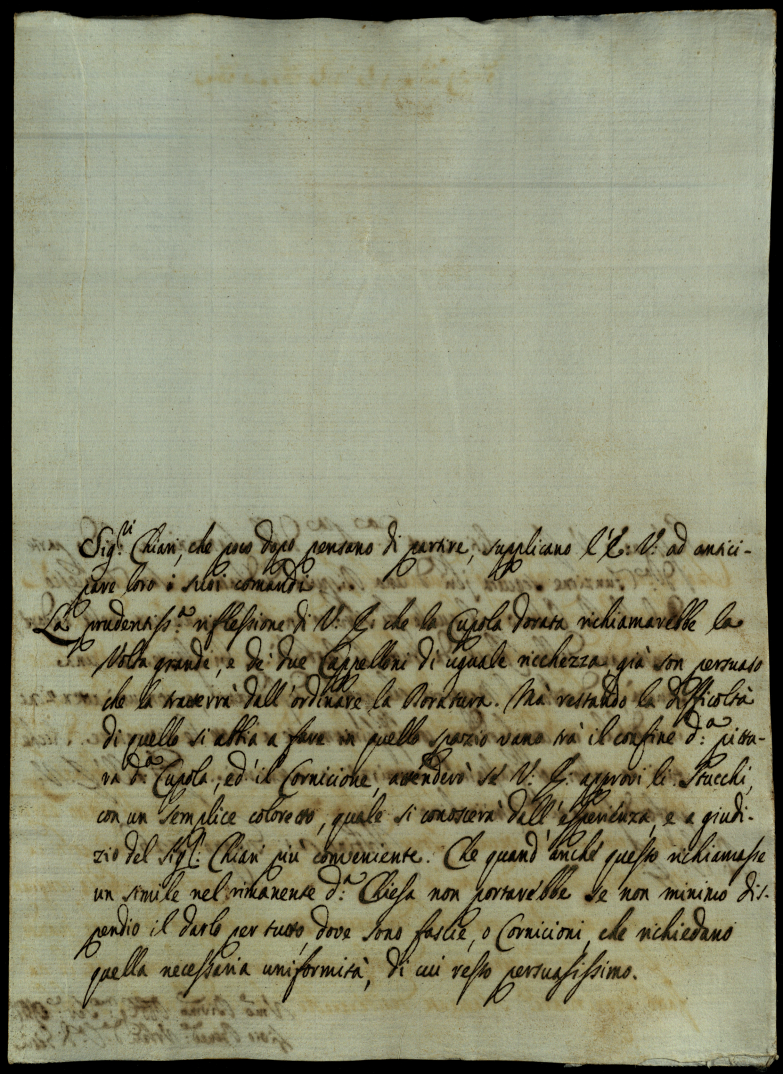 Sig.ri Chiari, che poco dopo pensano di partire, supplicano l'E: V: ad antici-
pare loro i suoi comandi
La prudentiss.a riflessione di V: E: che la Cupola dorata richiamarebbe la
Volta grande, e de due Cappelloni di uguale ricchezza già son persuaso
che la tratterrà dall'ordinare la Doratura. Mà restando la difficoltà
di quello si abbia a fare in quello spazio vano trà il confine d.a pittu-
ra d.a Cupola, ed'il Cornicione, attenderò se V: E: approvi li Stucchi,
con un semplice coloretto, quale si conoscerà dall'esperienza, e a giudi-
zio del Sig.r Chiari più conveniente. Che quand'anche questo richiamasse
un simile nel rimanente d.a Chiesa non portarebbe se non minimo dis-
pendio il darlo per tutto, dove sono fascie, o Cornicioni, che richiedano
quella necessaria uniformità, di cui resto persuasissimo.